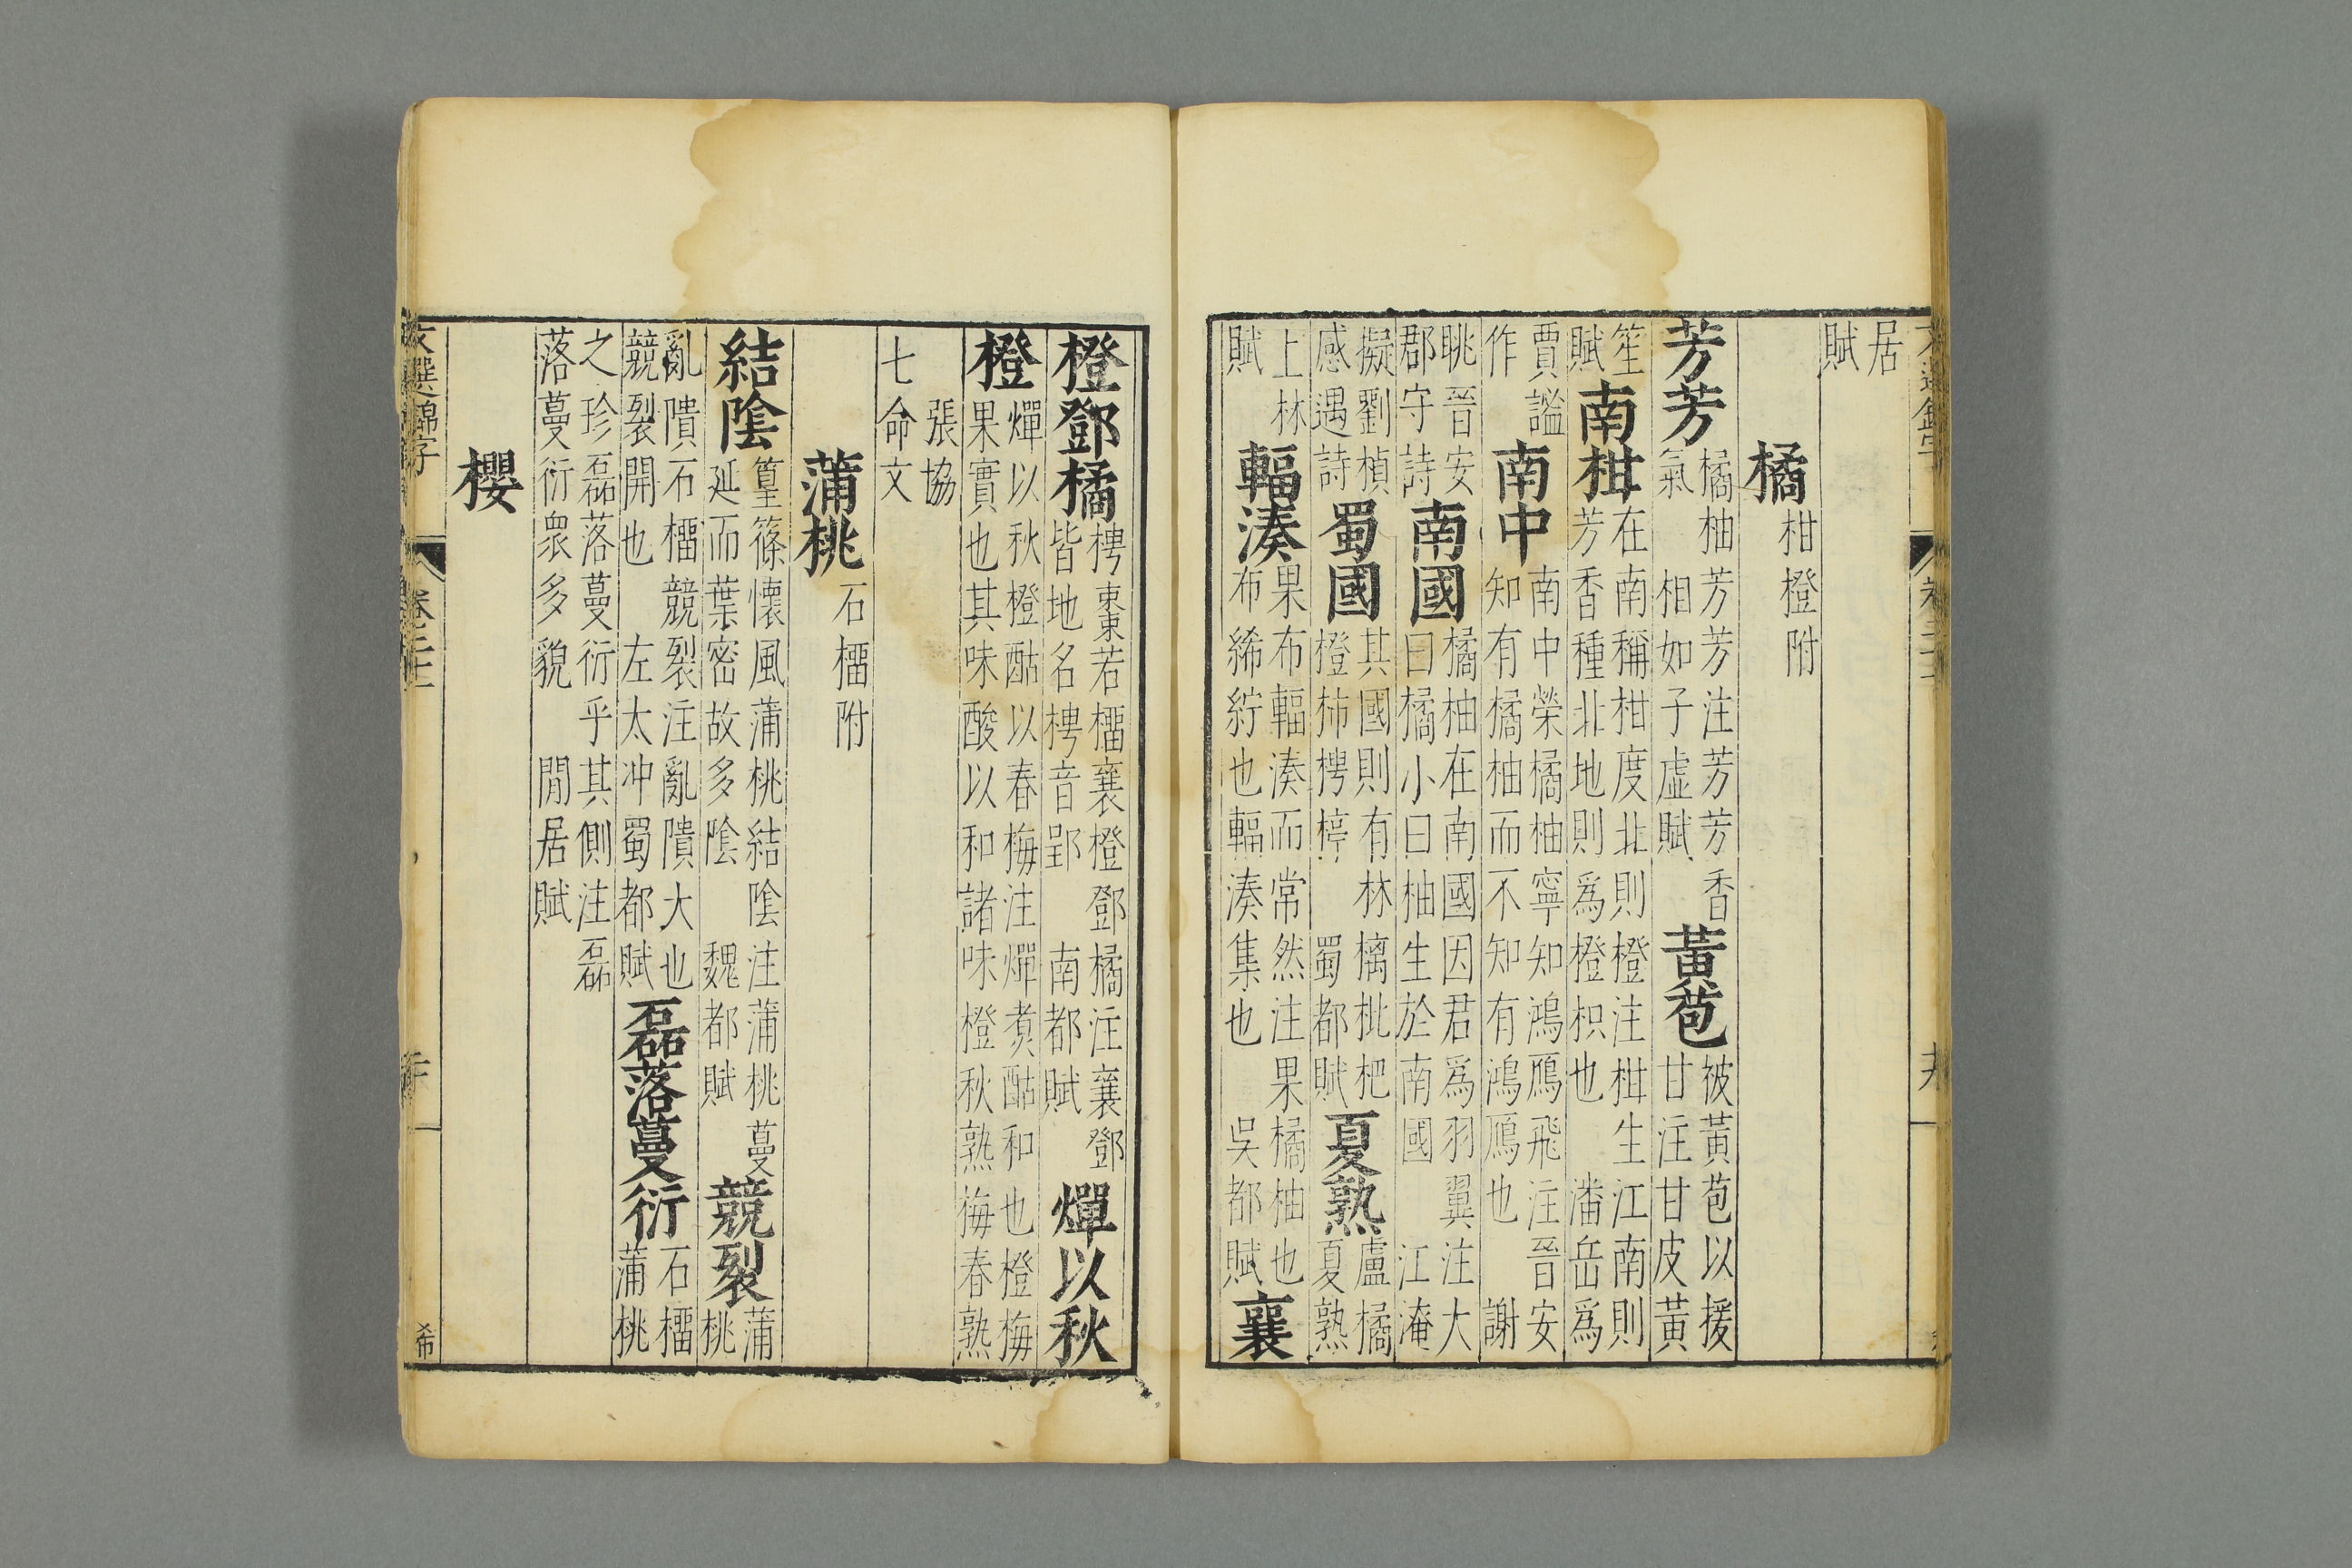 居賦
橘柑橙附
芳芳橘柚芳芳注芳芳香氣 相如子虛賦 黃苞被黃苞以援甘注甘皮黃
笙賦南柑在南稱柑度北則橙注柑生江南則芳香種北地則爲橙枳也 潘岳爲
賈謐作南中南中榮橘柚寧知鴻鴈飛注晉安知有橘柚而不知有鴻鴈也 謝
眺晉安郡守詩南國橘柚在南國因君爲羽翼注大曰橘小曰柚生於南國 江淹
擬劉楨感遇詩蜀國其國則有林檎枇杷橙柿梬楟 蜀都賦夏熟盧橘夏熟
上林賦輻湊果布輻湊而常然注果橘柚也布絺紵也輻湊集也 吳都賦襄
橙鄧橘梬棗若橊襄橙鄧橘注襄鄧皆地名梬音郢 南都賦燀以秋
橙燀以秋橙酤以春梅注燀煑酤和也橙梅果實也其味酸以和諸味橙秋熟梅春熟
張協七命文
蒲桃石橊附
結陰篁篠懷風蒲桃結陰注蒲桃蔓延而葉密故多陰 魏都賦競裂蒲桃
亂潰石橊競裂注亂潰大也競裂開也 左太冲蜀都賦磊落蔓衍石橊蒲桃
之珍磊落蔓衍乎其側注磊落蔓衍衆多貌 閒居賦
櫻
文選錦字
希